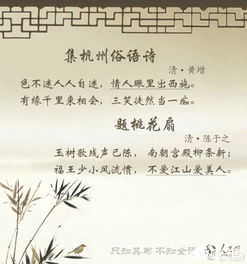 集杭州俗语诗
清·黄增
色不迷人人自迷，情人眼里出西施。
有缘千里来相会，三笑徒然当一痴。
题桃花扇
清·陈于之
玉树歌残声已陈，南朝宫殿柳条新；
福王少小风流惯，不爱江山爱美人。
只知其句 不知全